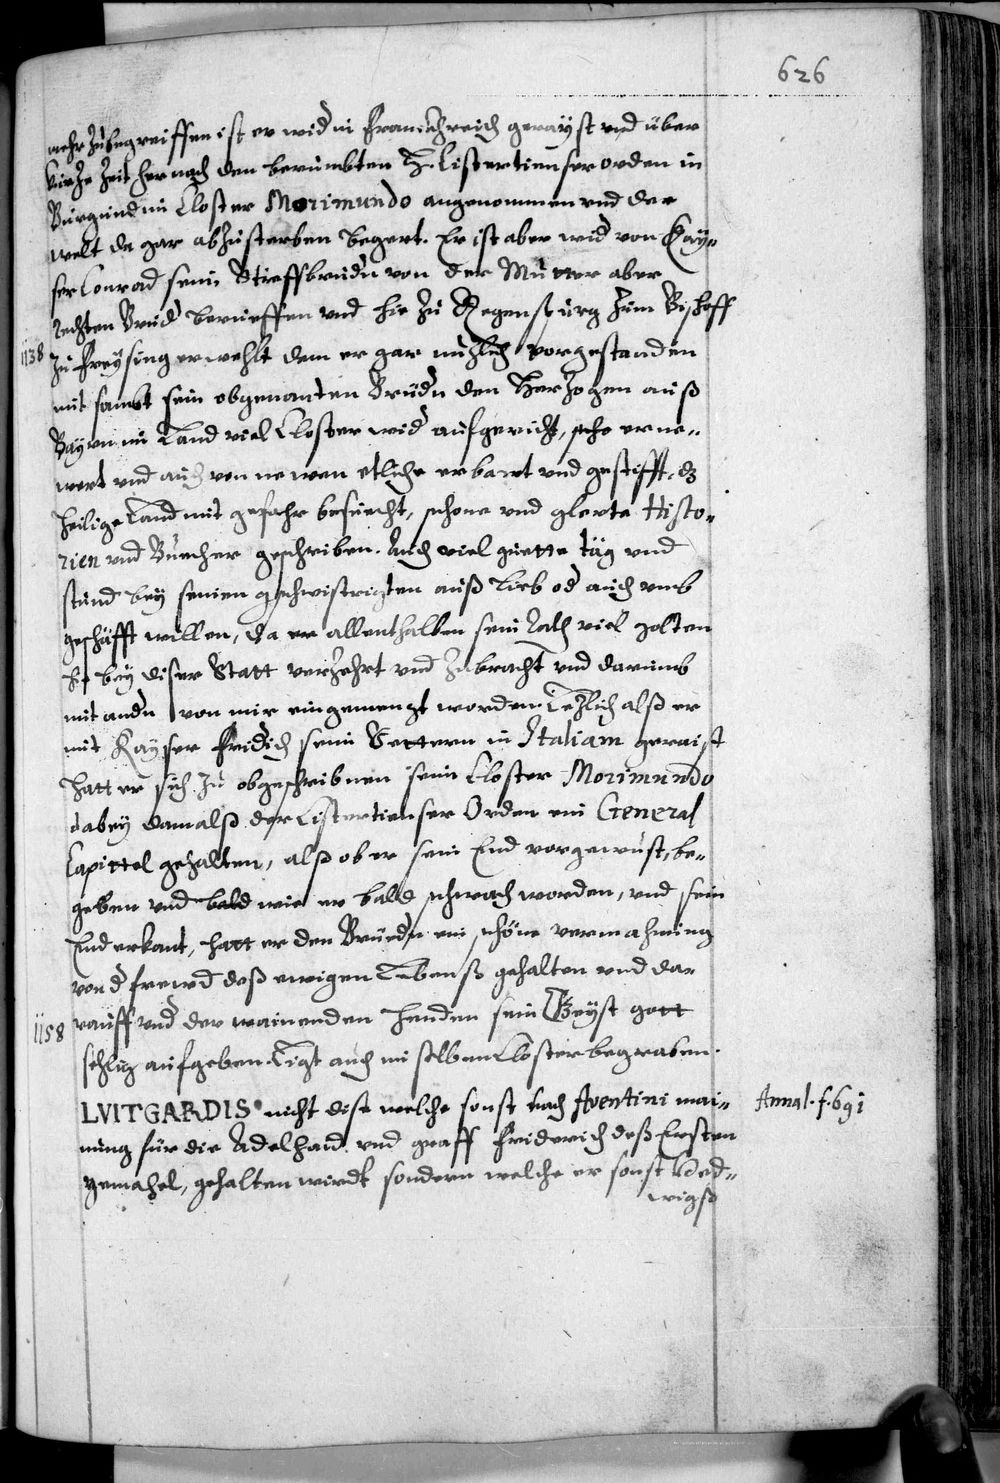 626
mehr zubegreiffen ist er wid in Franckhreich gerayst vnd über
kurze Zeit hernach den berümbten H. Cistertienser orden in
Burgund im Closter Morimundo angenommen vnd der
welt da gar abzusterben begert. Er ist aber wid von Kay-
ser Conrad seim Stieffbrudn von der Mutter aber
rechten Brud beruffen vnd hie zu Regenspurg zum Bischoff
1138
zu Freysing erwehlt dem er gar nuzlich vorgestanden
mit sambt sein obgenanten Brüdn den Herzogen auß
Bayrn im Land viel Clöster wid aufgericht, erne-
wert vnd auch von newen etliche erbawt vnd gestifft, dz
heilige Land mit gefahr besuecht, schone vnd glerte Histo-
rien vnd Buecher geschriben. Auch viel guette täg vnd
stund bey seinen geschwistrigten auß Lieb od auch vmb
geschäfft willen, da er allenthalben sein rath viel golten
hie bey diser Statt verzehrt vnd zubracht vnd darumb
mit andn von mir eingemengt worden. Lezlich alß er
mit Kayser Fridich seim Vettern in Italiam geraist
hatt er sich zu obgeschribnen seim Closter Morimundo
dabey damalß der Cistertienser Orden ein General
Capittel gehalten, alß ob er sein End vorgewust, be-
geben vnd bald wie er bald schwach worden, vnd sein
End erkant, hatt er den Brüedn ein schöne vermahnung
von d frewd deß ewigen Lebenß gehalten vnd da-
1158
rauff vnd der wainenden henden sein Geyst gott
sehlig aufgeben. Ligt auch im selben Closter begraben.
LVITGARDIS nicht dise welche sonst nach Aventini mai-
Annal. f. 691
nung für die Adelhaid vnd graff Friderich deß Ersten
gemahel, gehalten wirdt sondern welche er sonst Hed-
wigß